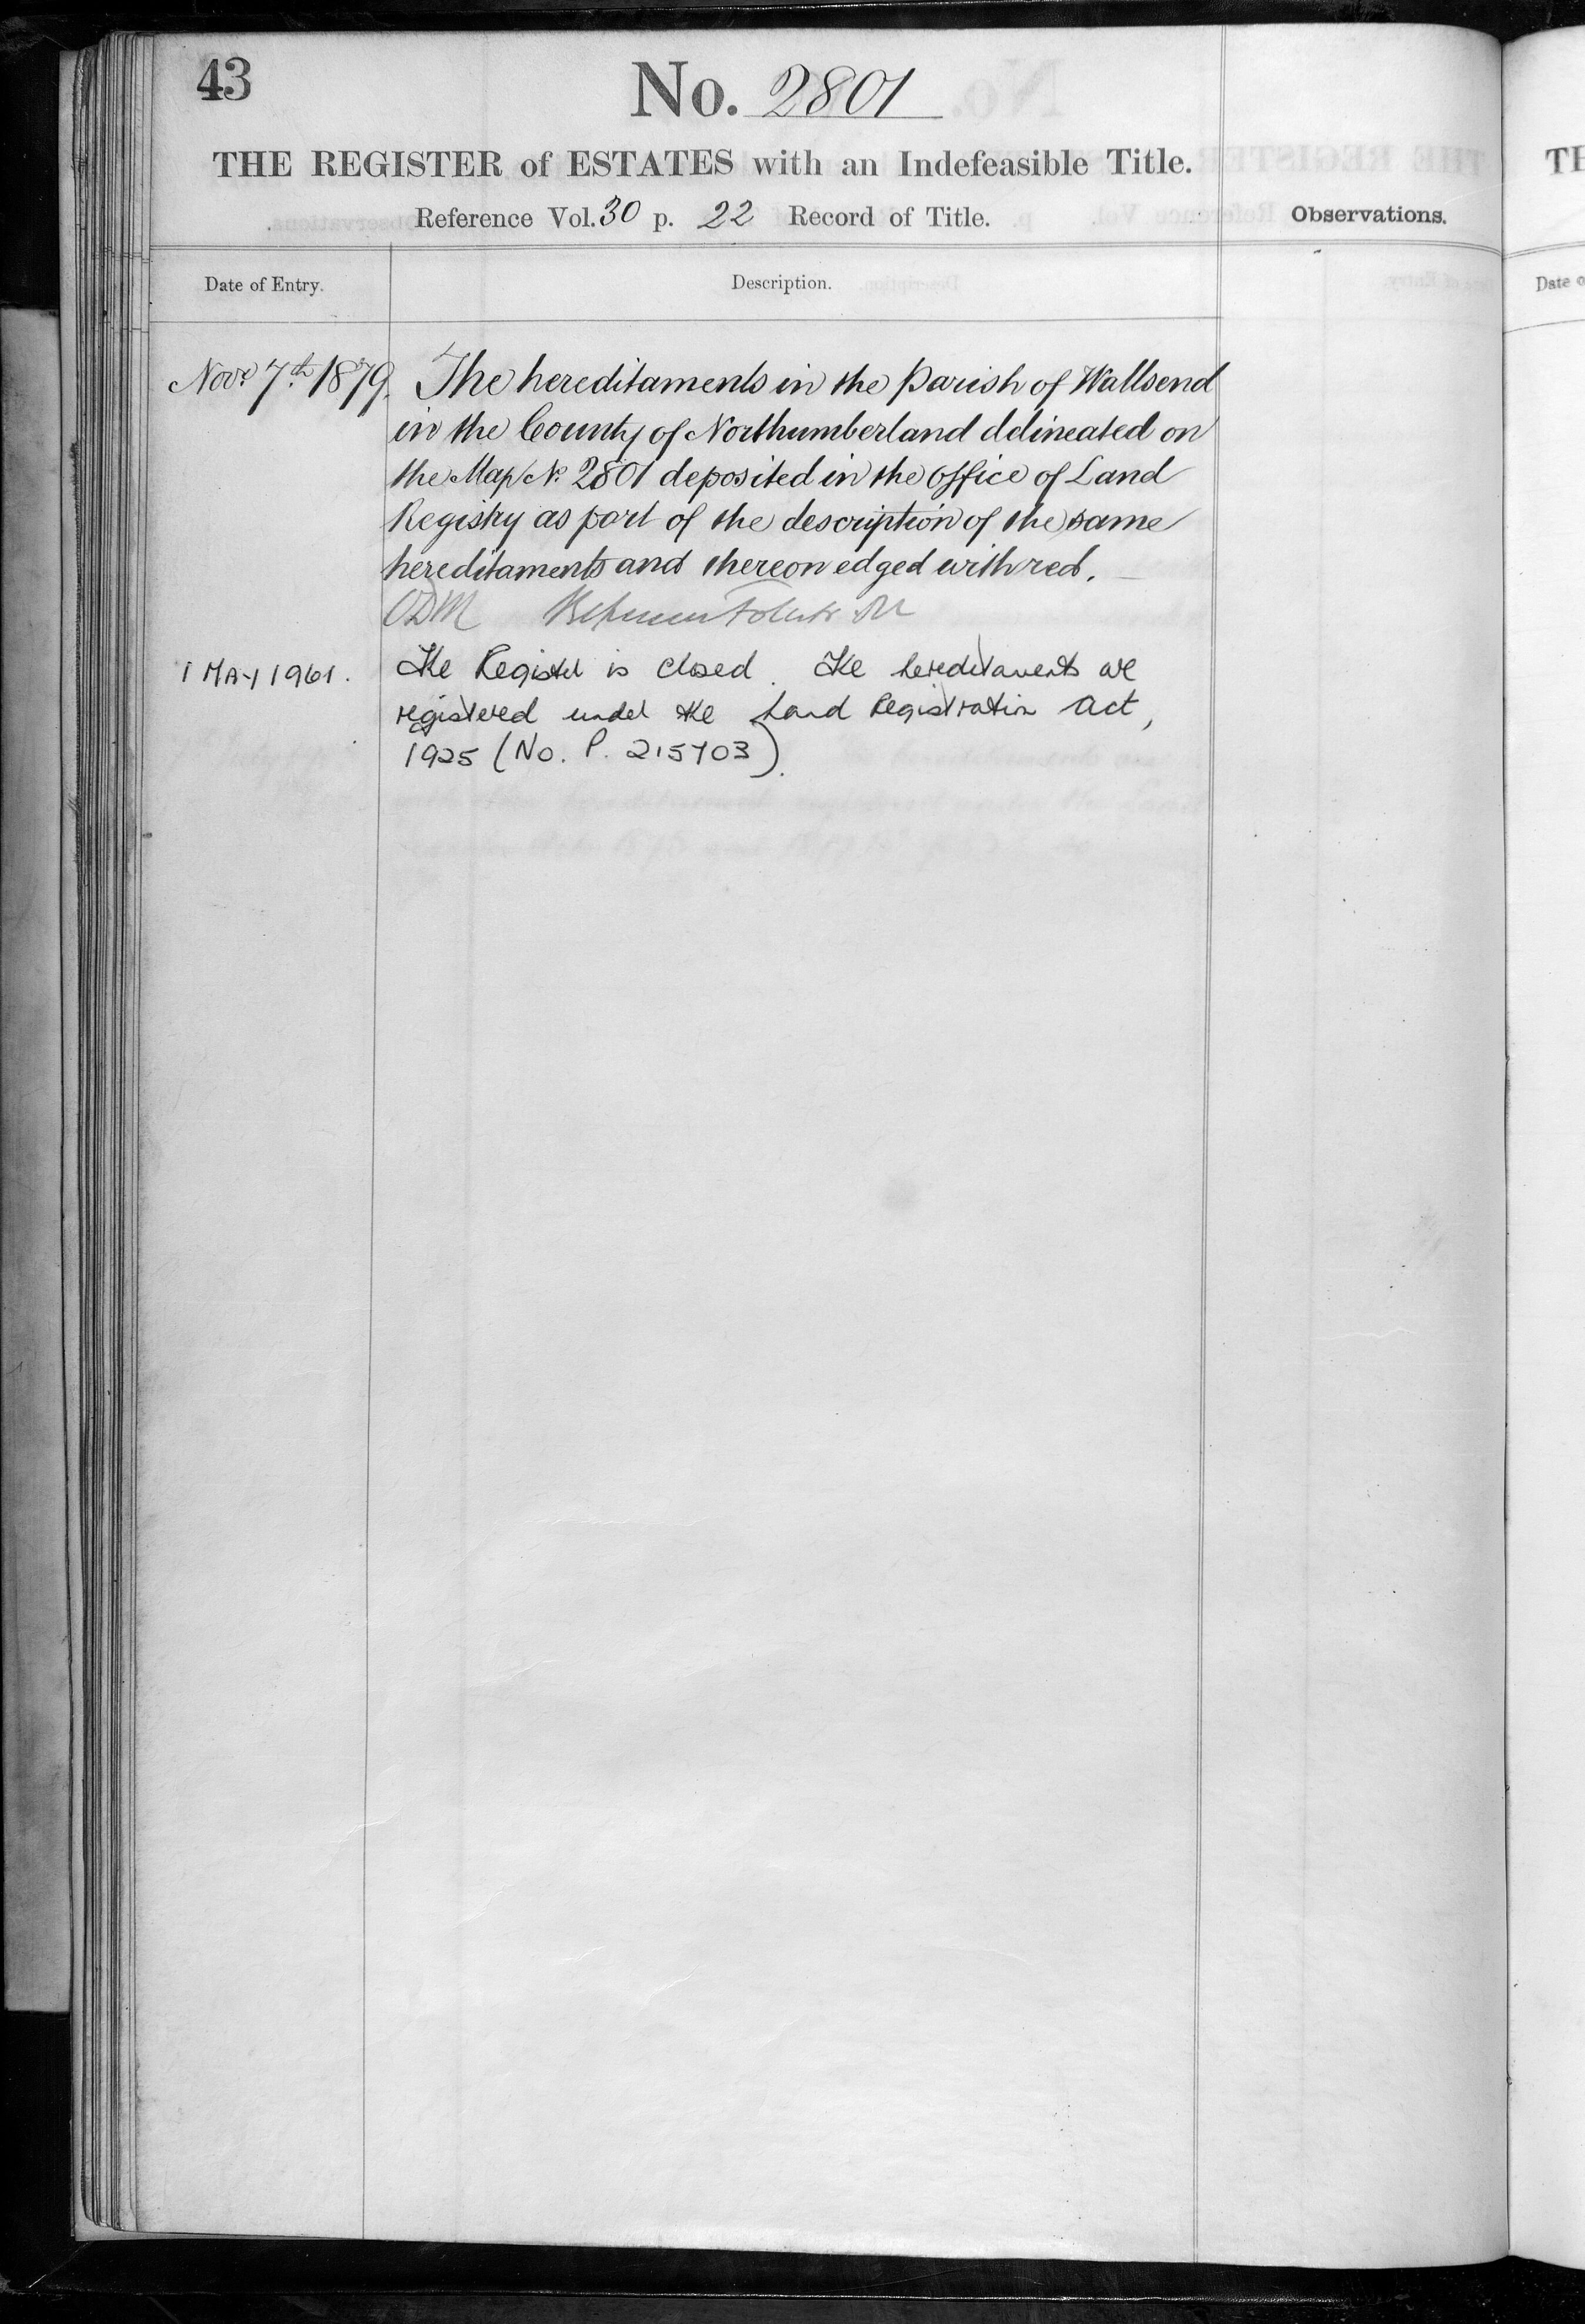 43
No. 2801
THE REGISTER of ESTATES with an Indefeasible Title.
Reference Vol. 30 p. 22 Record of Title.
Observations.
Date of Entry.
Description.
Novr 7th 1879. The hereditaments in the Parish of Wallsend
in the County of Northumberland delineated on
the Map No 2801 deposited in the office of Land
Registry as part of the description of the same
hereditaments and thereon edged with red.
1 MAY 1961. The Register is closed. The hereditaments are
registered under the Land Registration Act,
1925 (No. P. 215703).
TH
Date o